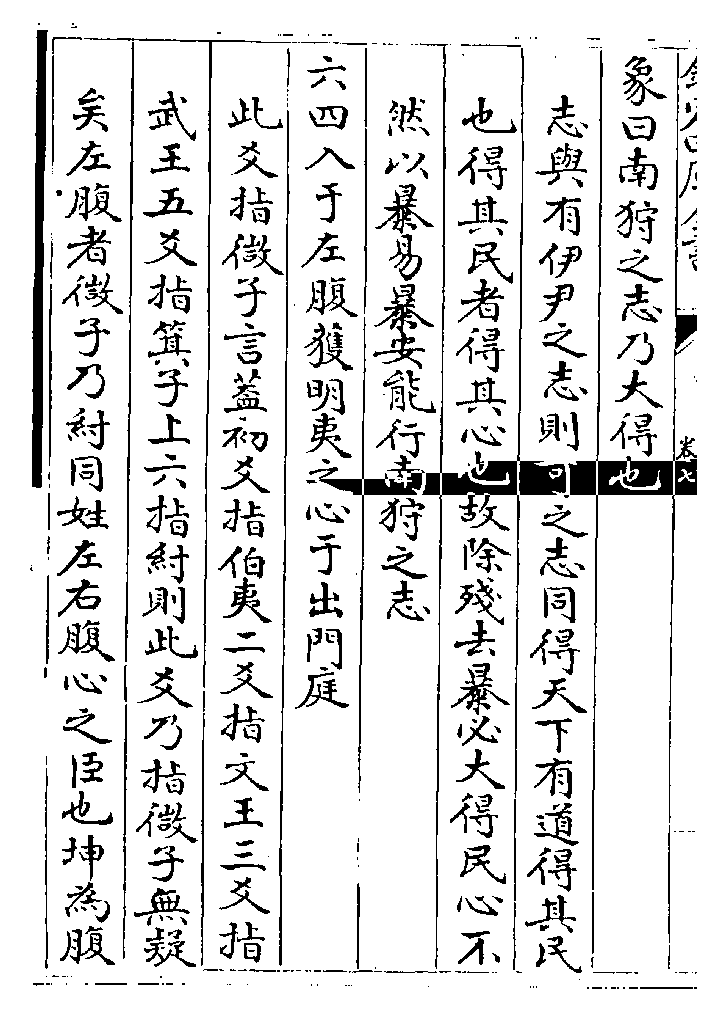 卷七
象曰南狩之志乃大得也
志與有伊尹之志則可之志同得天下有道得其民
也得其民者得其心也故除殘去暴必大得民心不
然以暴易暴安能行南狩之志
六四入于左腹獲明夷之心于出門庭
此爻指微子言蓋初爻指伯夷二爻指文王三爻指
武王五爻指箕子上六指紂則此爻乃指微子無疑
矣左腹者微子乃紂同姓左右腹心之臣也坤為腹